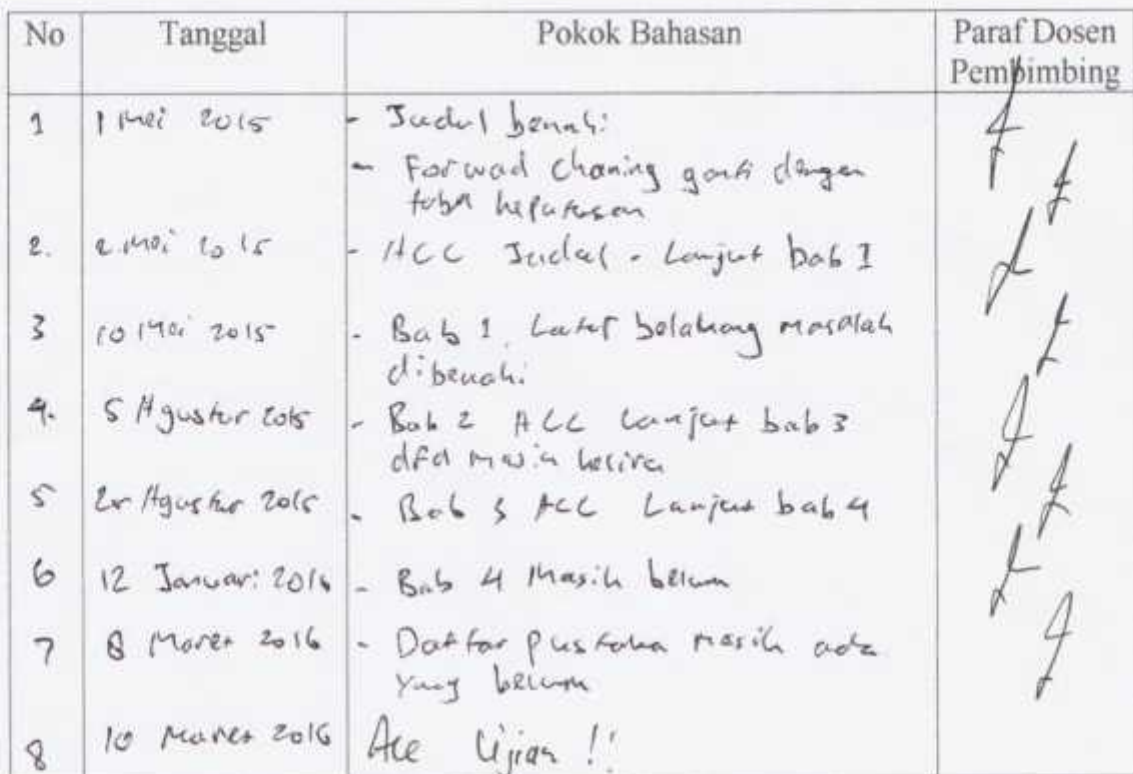 No Tanggal Pokok Bahasan Paraf Dosen
Pembimbing
1 1 Mei 2015 - Judul benahi
- Forwad Chaning ganti dengan
tabel keputusan
2. 2 Mei 2015 - ACC Judul - Lanjut bab 1
3 10 Mei 2015 - Bab 1. Latar belakang masalah
dibenahi
4. 5 Agustus 2015 - Bab 2 ACC Lanjut bab 3
dfd masih
5 Agustus 2015 - Bab 3 ACC Lanjut bab 4
6 12 Januari 2016 - Bab 4 Masih belum
7 8 Maret 2016 - Daftar pustaka masih ada
yang belum
8 10 Maret 2016 Acc Ujian !!